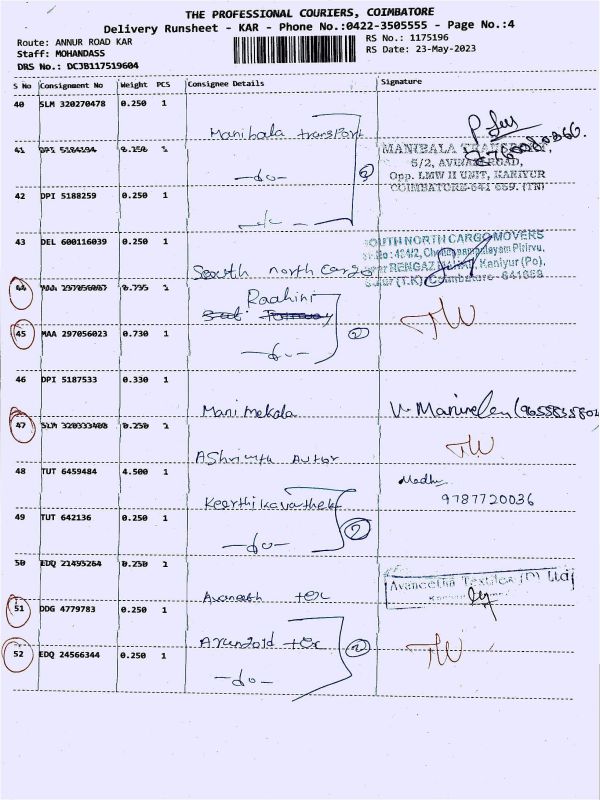 THE PROFESSIONAL COURIERS, COIMBATORE
Delivery Runsheet - KAR - Phone No.:0422-3505555 - Page No.:4
Route: ANNUR ROAD KAR
RS No.: 1175196
Staff: MOHANDASS
RS Date: 23-May-2023
DRS No.: DCJB117519604
S No Consignment No Weight PCS Consignee Details Signature
40 SLM 320270478 0.250 1
Manibala transport
41 DPI 0.250 1 -do-
MANIBALA
5/2, ROAD,
Opp. LMW II UNIT, KANIYUR
COIMBATORE-641 659. (TN)
42 DPI 5188259 0.250 1
43 DEL 600116039 0.250 1 South north cargo
SOUTH NORTH CARGO MOVERS
Kaniyur (Po),
Coimbatore - 641659
44 MAA 297056007 0.735 1 Raahini
45 MAA 297056023 0.730 1 -do- 2
TW
46 DPI 5187533 0.330 1 Manimekala
47 SLM 320333400 0.250 1
TW
48 TUT 6459484 4.500 1
Madhu
9787720036
49 TUT 642136 0.250 1 -do- 2
50 EDQ 21495264 0.250 1
Avaneetha Textiles (P) Ltd
51 DDG 4779783 0.250 1
52 EDQ 24566344 0.250 1 -do- 2
TW